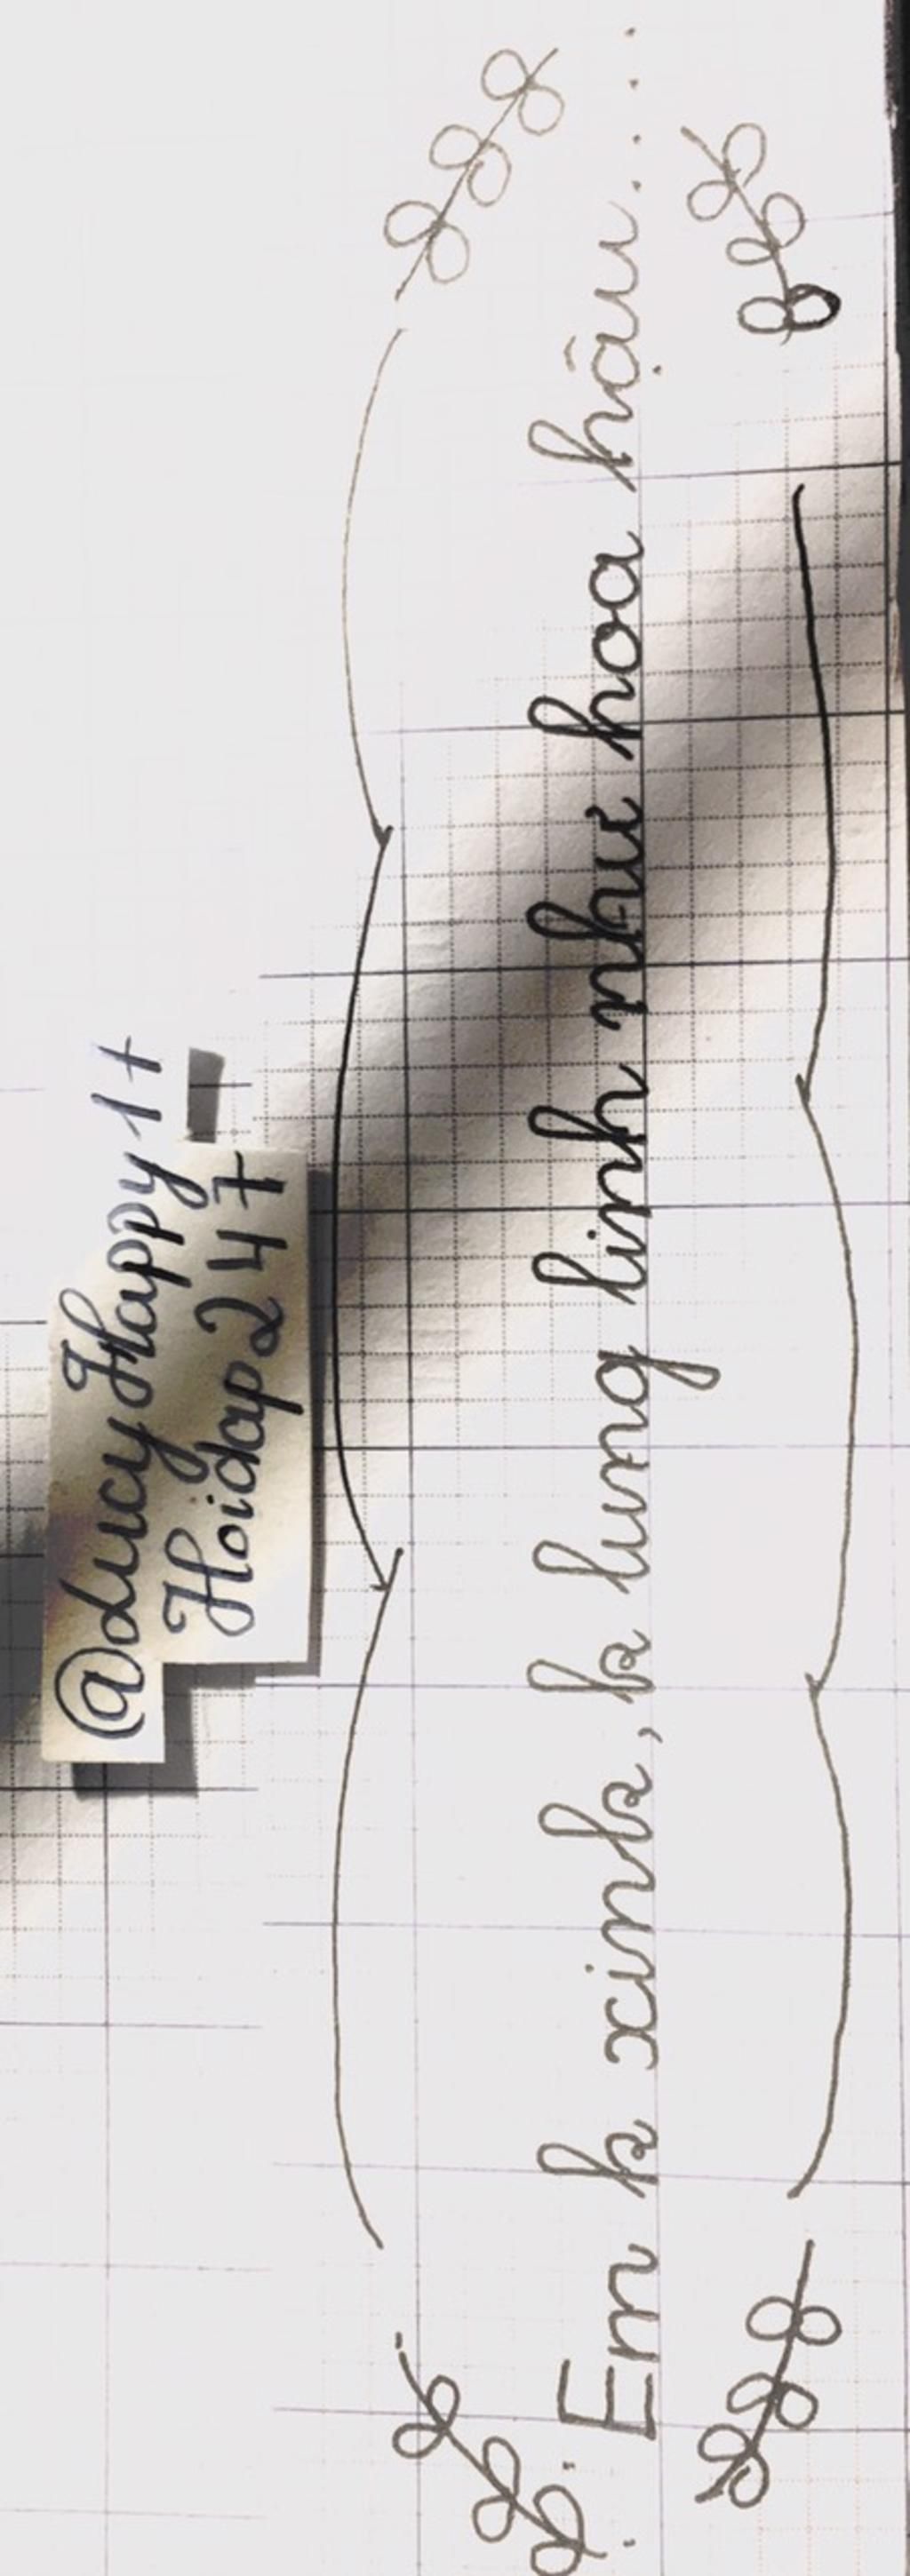 @LucyHappy1+
Hoidap247
: Em k xinh, k lung linh như hoa hậu....